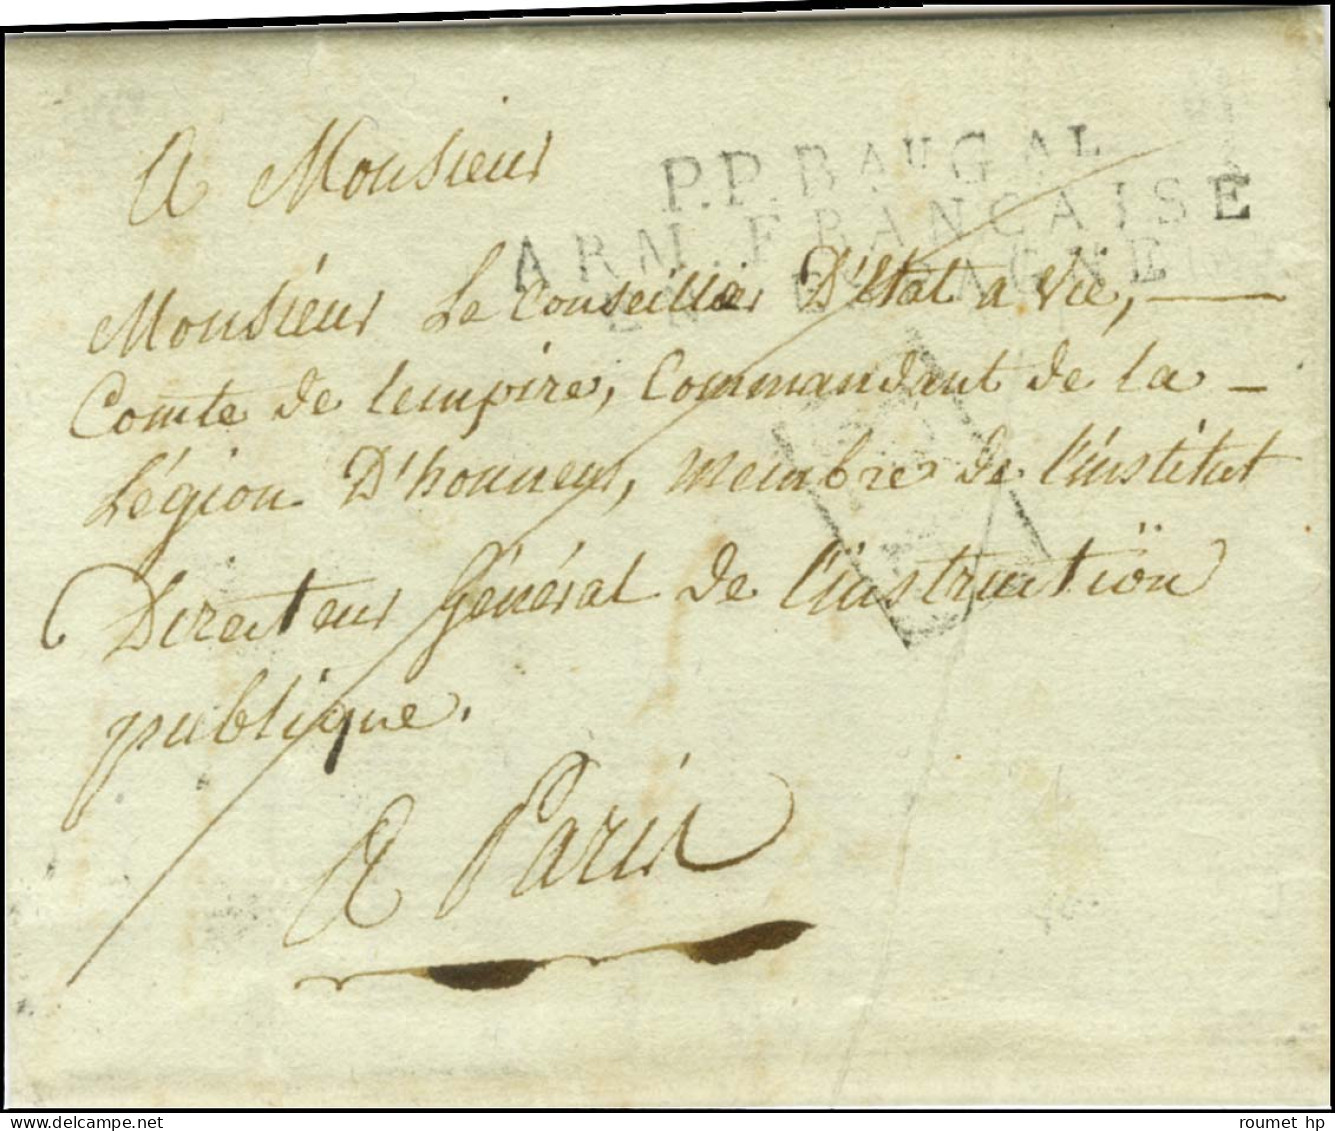 A Monsieur
P.P. BAU GAL
ARM. FRANÇAISE
EN ESPAGNE
Monsieur Le Conseiller D'Etat a Vie,
Comte de lempire, Commandant de la
Légion D'honneur, Membre de l'institut
Directeur Général de l'instruction
publique.
A Paris
delcampe.net
roumet hp